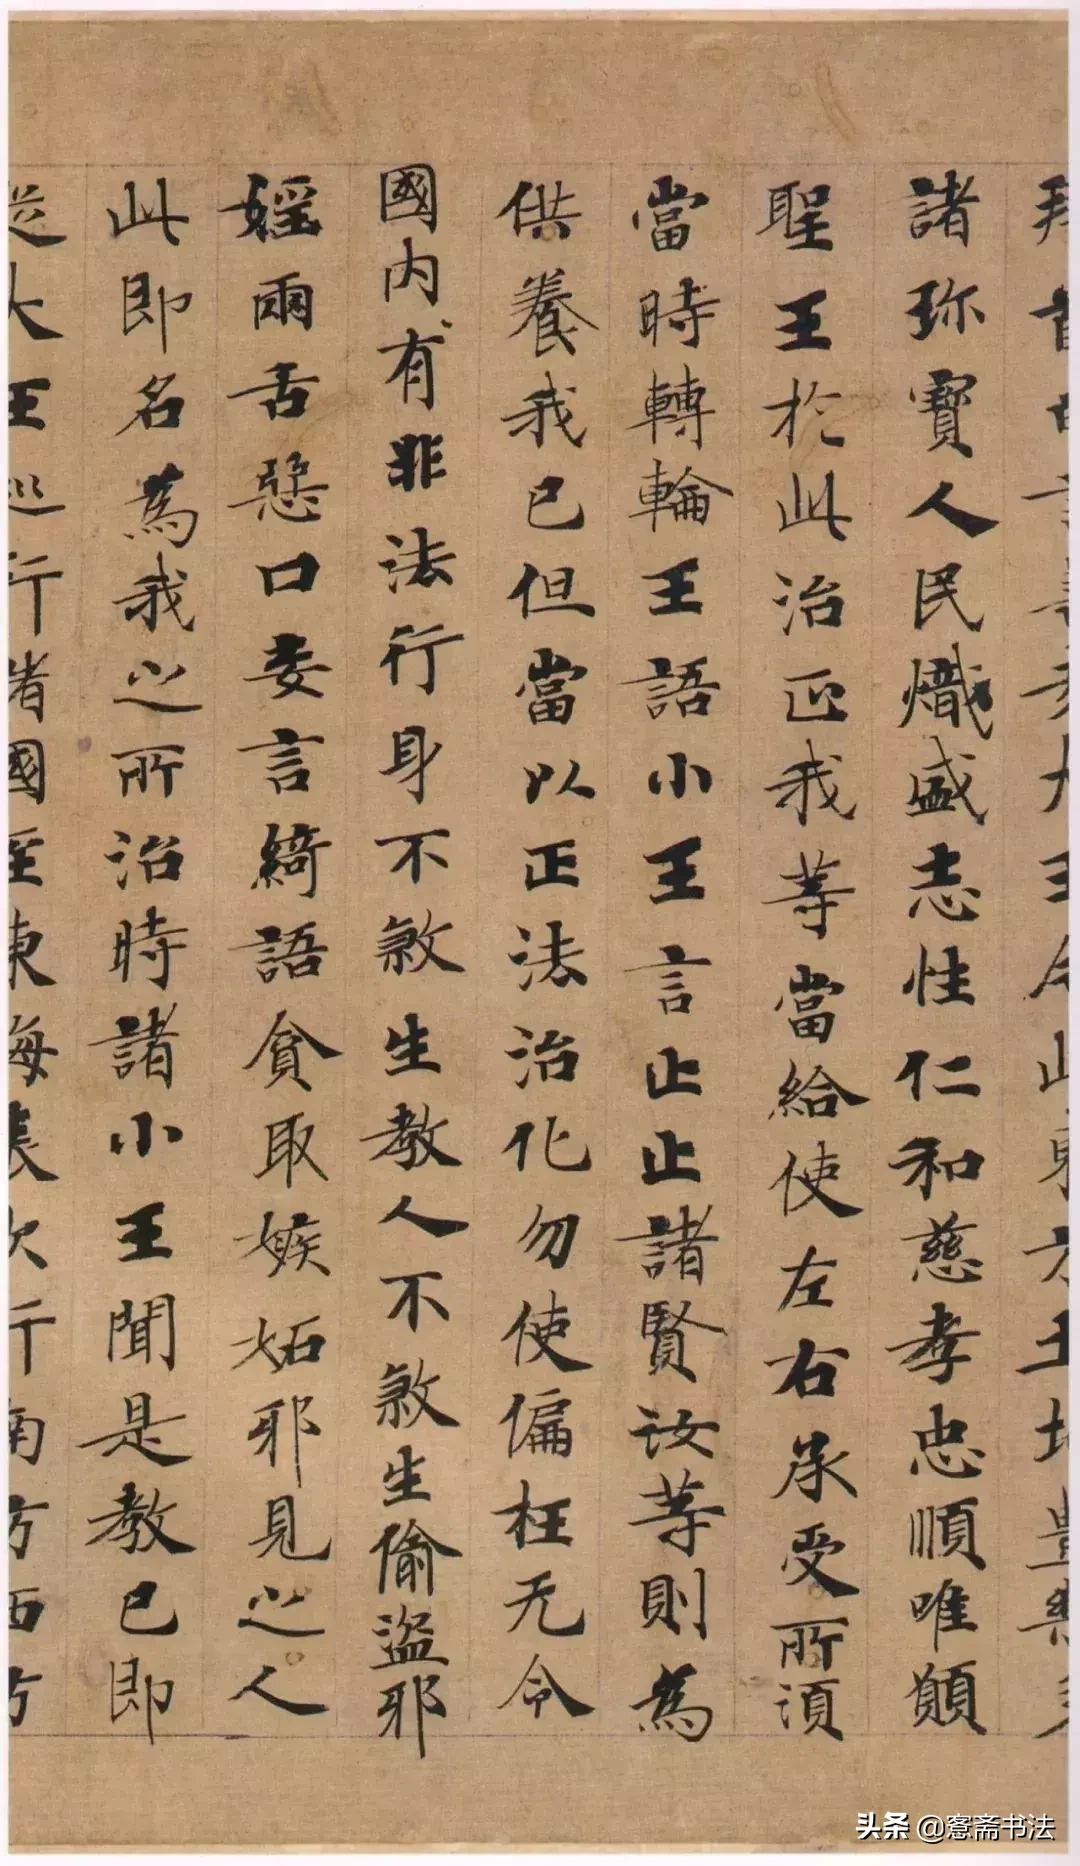 言善哉大王今此東方土地豊樂多
諸珎寶人民熾盛志性仁和慈孝忠順唯願
聖王於此治正我等當給使左右承受所須
當時轉輪王語小王言止止諸賢汝等則為
供養我已但當以正法治化勿使偏枉无令
國内有非法行身不煞生教人不煞生偷盜邪
婬兩舌惡口妄言綺語貪取嫉妬邪見之人
此即名為我之所治時諸小王聞是教已即
從大王巡行諸國至東海表次行南方西方
头条 @窓斋书法